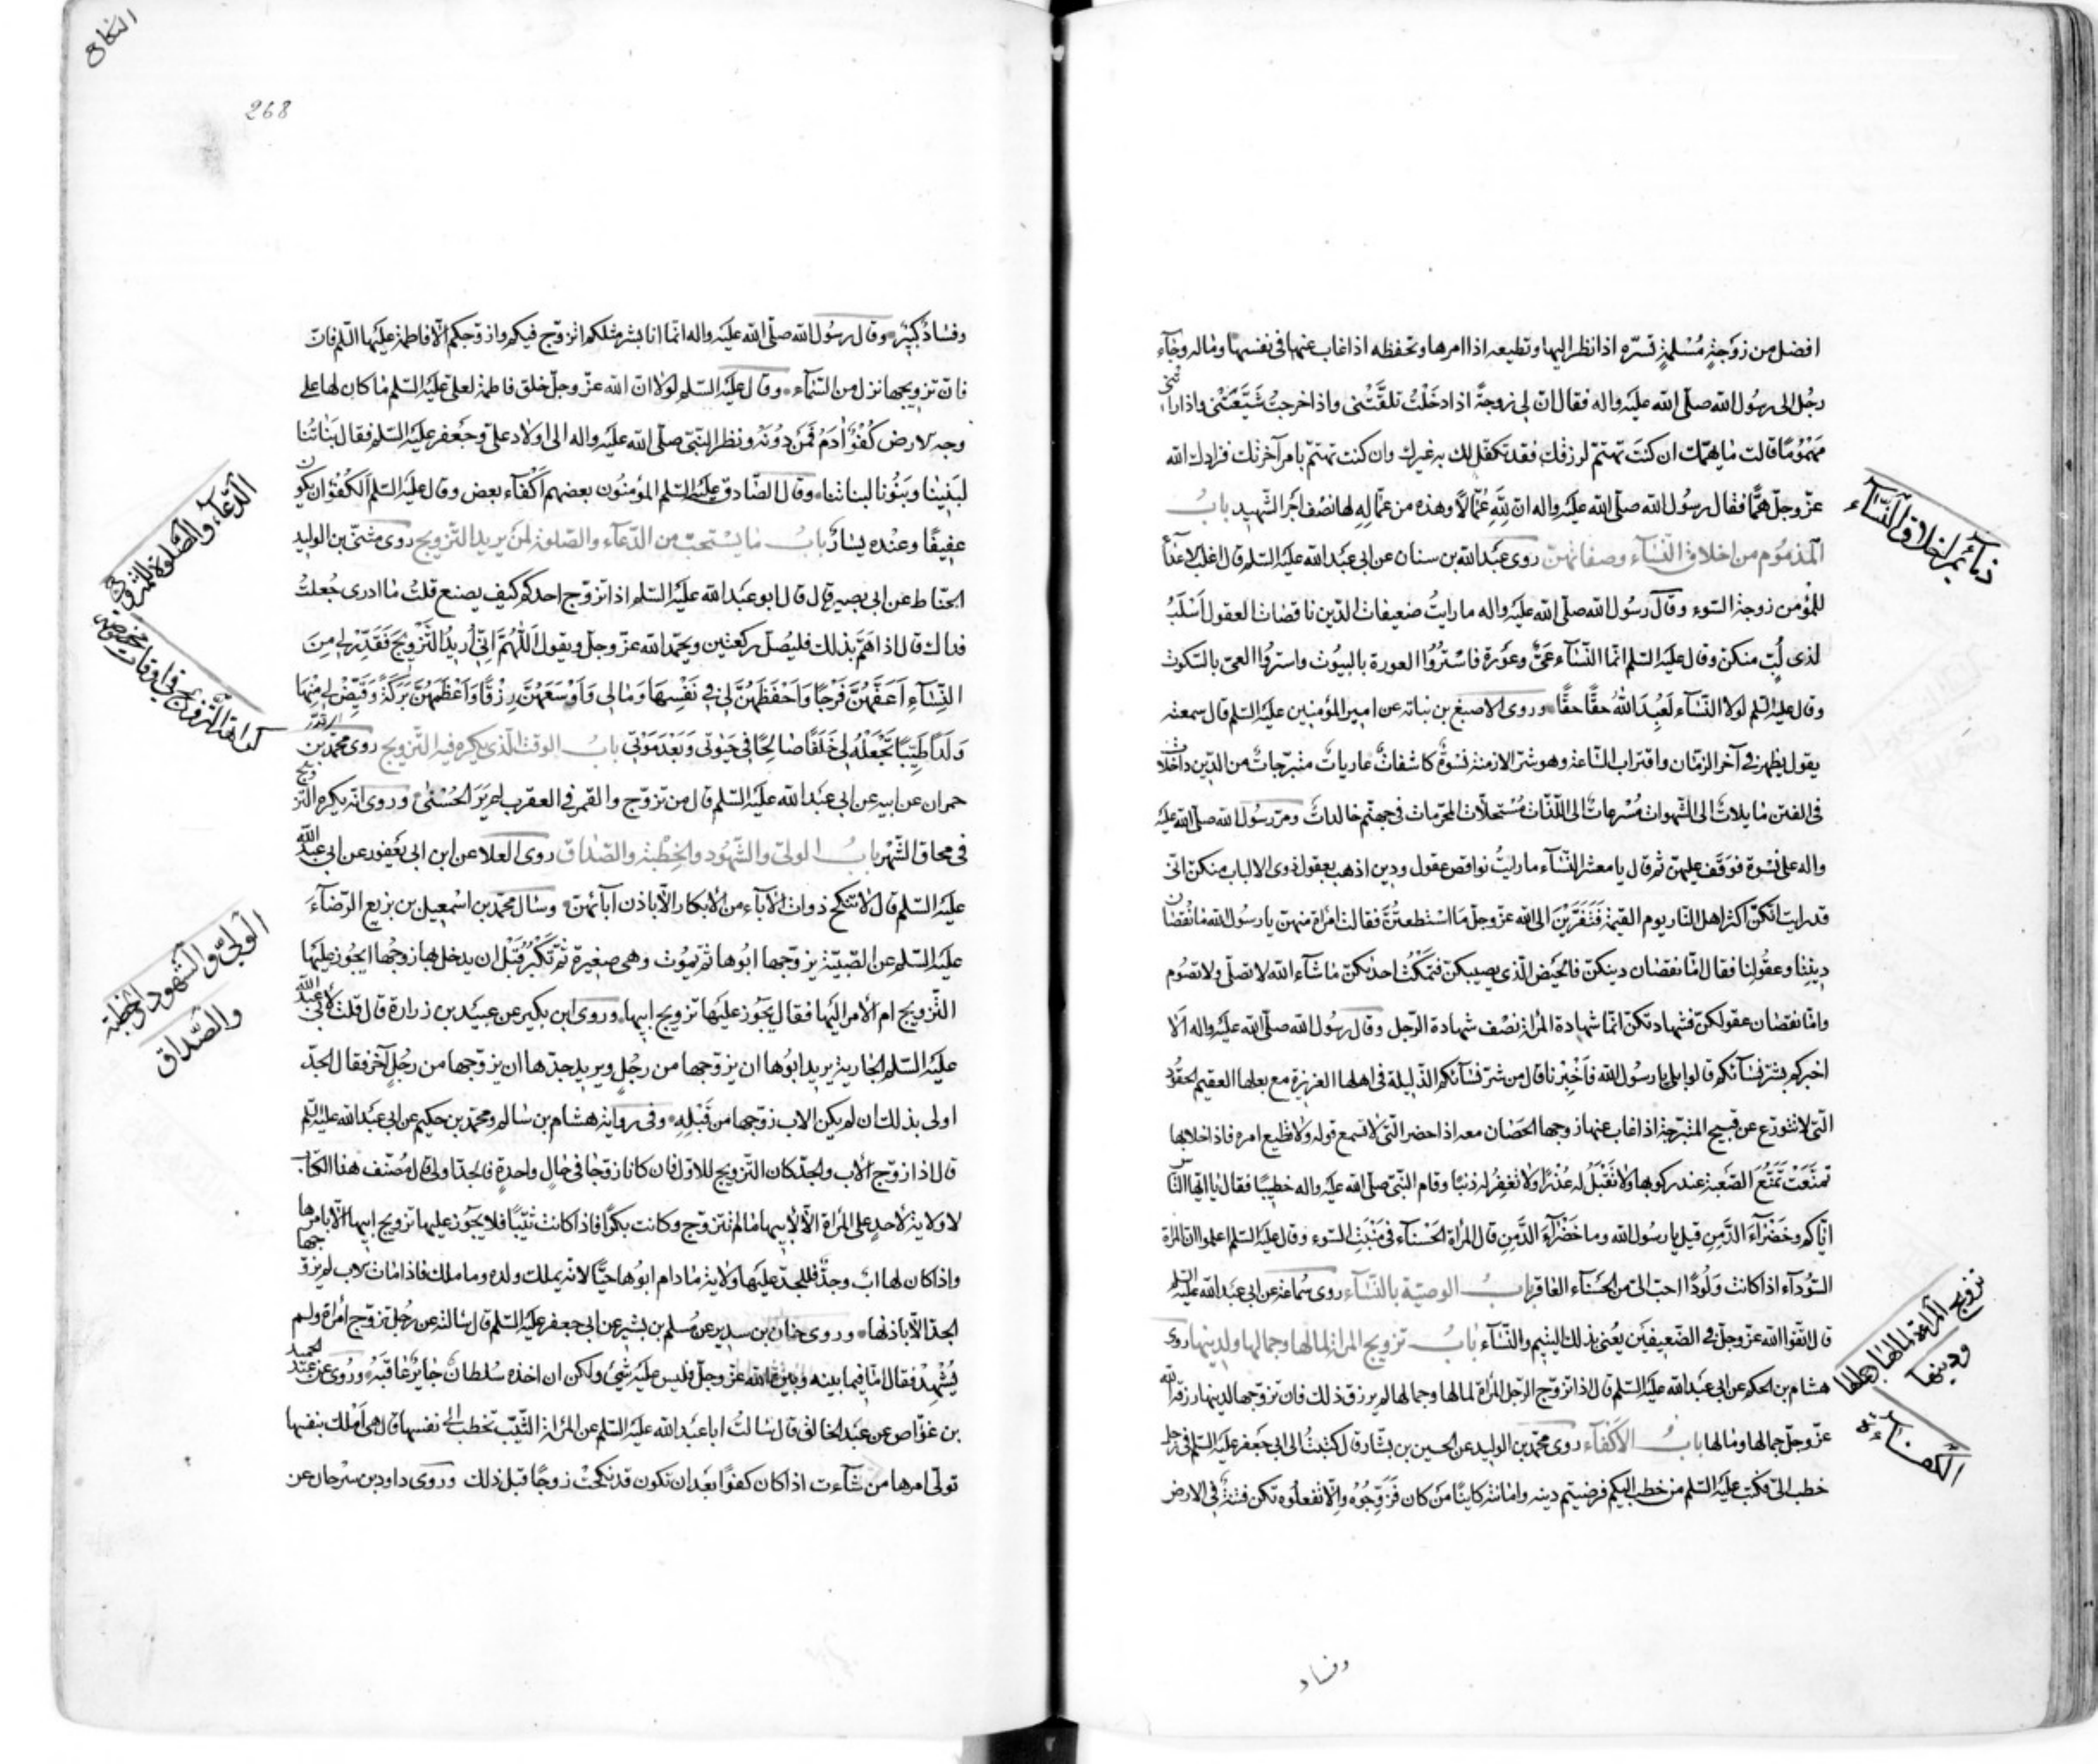 افضل من زوجةٍ مُسْلمةٍ تسرّه اذا نظر اليها وتطيعه اذا امرها وتحفظه اذا غاب عنها فى نفسها وماله وجآء
رجُل الى رسُول الله صلّى الله عليه واله فقال انّ لى زوجةً اذا دخَلْتُ تلقّتْنى واذا خرجتُ شيّعَتْنى واذا راتنى
مَهْمُومًا قالت ما يهمّك ان كنتَ تهتمّ لرزقك فقد تكفّل لك به غيرك وان كنت تهتمّ بامر آخرتك فزادك الله
عزّ وجلّ همًّا فقال رسُول الله صلّى الله عليه واله انّ لِلّهِ عُمّالاً وهذه من عمّالِهِ لها نصْف اجْر الشّهيد بابُ
المذمُوم من اخلاق النّسآء وصفاتهنّ روى عبْد الله بن سنان عن ابى عبْد الله عليه السّلم قال اغلب الاعدآء
للمُؤمن زوجة السّوء وقال رسُول الله صلّى الله عليه واله ما رايتُ ضعيفات الدّين ناقصات العقول اسْلَبُ
لذى لُبّ منكنّ وقال عليه السّلم انّما النّسآء عىٌّ وعَوْرة فاسْترُوا العورة بالبيُوت واسترُوا العىّ بالسّكوت
وقال عليه السّلم لولا النّسآء لعُبِدَ اللهُ حقًّا حقًّا وروى الاصبغ بن نباته عن امير المؤمنين عليه السّلم قال سمعته
يقول يظهر فى آخر الزّمان واقتراب السّاعة وهو شرّ الازمنة نسْوةٌ كاشفاتٌ عارياتٌ متبرّجاتٌ من الدّين داخلات
فى الفتن مايلاتٌ الى الشّهوات مُسْرعاتٌ الى اللّذّات مُسْتحلّات المحرّمات فى جهنّم خالداتٌ ومرّ رسُول الله صلّى الله عليه
واله على نسْوة فوَقَف عليهنّ ثم قال يا معشر النّسآء ما رايتُ نواقص عقول ودين اذهب بعقول ذوى الالباب منكنّ انّى
قد رايت انّكنّ اكثر اهل النّار يوم القيمة فتقرّبْنَ الى الله عزّ وجلّ مَا اسْتطعتُنّ فقالت امْراة منهنّ يا رسُول الله ما نقصان
ديننا وعقُولنا فقال امّا نقصان دينكنّ فالحَيْض الّذى يصيبكنّ فتمْكُث احديكنّ ما شآء الله لا تصلّى ولا تصُوم
وامّا نقصان عقولكنّ فشهادتكنّ انّما شهادة المراة نصْف شهادة الرّجل وقال رسُول الله صلّى الله عليه واله الا
اخبركم بشرّ نسآئكم قالوا بلى يا رسُول الله فاَخْبِرنا قال من شرّ نسآئكم الذّليلة فى اهلها العزيزة مع بعلها العقيم الحقُود
الّتى لا تتورّع عن قبيح المتبرّجة اذا غاب عنها زوجها الحَصان معه اذا حضر الّتى لا تسمع قوله ولا تطيع امره فاذا خلا بها
تمنّعَتْ تَمَنُّعَ الصّعبة عند ركوبها ولا تَقْبَلُ له عُذْرًا ولا تَغفِرُ له ذنبًا وقام النّبىّ صلّى الله عليه واله خطيبًا فقال يا ايّها النّاس
ايّاكم وخَضْرآءَ الدِّمنِ قيل يا رسُول الله وما خَضْرآءَ الدِّمنِ قال المرْاة الحَسْنآء فى مَنْبَتِ السّوء وقال عليه السّلم اعلموا انّ المراة
السّودآء اذا كانت وَلُودًا احبّ الىّ من الحَسْنآء العاقر بابُ الوصيّة بالنّسآء روى سُماعة عن ابى عبْد الله عليه السّلم
قال اتّقوا الله عزّ وجلّ فى الضّعيفَيْن يُعنى بذلك اليتيم والنّسآء بابُ تزويج المراة لمالها وجمالها ولدينها روى
هشام بن الحكم عن ابى عبْد الله عليه السّلم قال اذا تزوّج الرّجل المرْاة لمالها وجمالها لم يرزق ذلك فان تزوّجها لدينها رزقه الله
عزّ وجلّ جمالها ومالها بابُ الاكْفآء روى محمّد بن الوليد عن الحسين بن بشّار قال كتبتُ الى ابى جعفر عليه السّلم فى رجل
خطب الىّ فكتب عليه السّلم من خطب اليكم فرضيتم دينه وامانته كاينًا مَن كان فزَوّجُوهُ وَاِلّا تفعلُوه تكن فتنةٌ فى الارض
وفساد
ذمآئم اخلاق النّسآء
تزويج المراة لمالها وجمالها
ودينها
الكفآءة
النكاح
268
وفسَادٌ كبيرٌ وقال رسُول الله صلّى الله عليه واله انّما انا بشر مثلكم اتزوّج فيكم وازوّجكم الّا فاطمة عليها السّلم فانّ
فانّ تزويجها نزل من السّمآء وقال عليه السّلم لولا انّ الله عزّ وجلّ خلق فاطمة لعلىّ عليه السّلم ما كان لها على
وجه الارض كُفْوٌ آدَمُ فمَنْ دُونَهُ ونظر النّبىّ صلّى الله عليه واله الى اولاد علىّ وجعفر عليه السّلم فقال بَناتُنا
لبَنينا وبَنُونا لبناتنا وقال الصّادق عليه السّلم المؤمنُون بعضهم اَكْفآء بعض وقال عليه السّلم الكُفْوُ ان يكون
عفيفًا وعنده يسَارٌ بابُ ما يسْتحبّ من الدّعآء والصّلوة لمن يريد التّزويج روى مثنّى بن الوليد
الحنّاط عن ابى بصير قال قال ابو عبْد الله عليه السّلم اذا تزوّج احدكم كيف يصنع قلتُ ما ادرى جُعلتُ
فداك قال اذا هَمَّ بذلك فليُصلّ ركعتين ويحمد الله عزّ وجلّ ويقول اَللّهُمَّ اِنّى اُريدُ التَّزْويجَ فَقَدِّرْ لى مِنَ
النِّسآءِ اَعَفَّهُنَّ فَرْجًا وَاَحْفَظَهُنَّ لى فى نَفْسِهَا وَمَالى وَاَوْسَعَهُنَّ رِزْقًا وَاَعْظَمَهُنَّ بَرَكَةً وَقَيِّضْ لى مِنْهَا
وَلَدًا طَيِّبًا تَجْعَلْهُ لى خَلَفًا صَالِحًا فى حَيٰوتى وَبَعْدَ مَوْتى بابُ الوقت الّذى يكره فيه التّزويج روى محمّد بن
حمران عن ابيه عن ابى عبْد الله عليه السّلم قال من تزوّج والقمر فى العقرب لم يَرَ الحُسْنى وروى انّه يكره التّزويج
فى محاق الشّهْر بابُ الولىّ والشّهُود والخِطْبة والصّداق روى العلا عن ابن ابى يَعْفور عن ابى عبد الله
عليه السّلم قال لا تنكح ذوات الآباء من الابكار الّا باذن آبآئهنّ وسال محمّد بن اسْمعيل بن بزيع الرّضآءَ
عليه السّلم عن الصّبيّة يزوّجها ابُوها ثم يمُوت وهى صغيرة ثمّ تكْبُرُ قبْل ان يدخل بها زوجُها ايجُوز عليها
التّزويج ام الامر اليها فقال يجُوز عليها تزويج ابيها وروى ابن بكير عن عبيْد بن زرارة قال قلت لابى عبد الله
عليه السّلم الجارية يريد ابُوها ان يزوّجها من رجُلٍ ويريد جدّها ان يزوّجها من رجُلٍ آخر فقال الجدّ
اولى بذلك ان لم يكن الاب زوّجها من قَبْلِهِ وفى رواية هشام بن سَالم ومحمّد بن حكيم عن ابى عبْد الله عليه السّلم
قال اذا زوّج الاب والجدّ كان التّزويج للاوّل فان كانا زوّجا فى حالٍ واحدةٍ فالجدّ اولى قال مُصنّف هذا الكتاب
لا ولاية لاحدٍ على المرْاة الّا لابيها مَا لم تتزوّج وكانت بكرًا فاذا كانت ثيّبًا فلا يجُوز عليها تزويج ابيها الّا بامْرها
واذا كان لها ابٌ وجدٌّ فللجدّ عليها ولاية مَا دام ابُوها حيًّا لانّه يملك ولده وما ملك فاذا مات الاب لم يزوّجها
الجدّ الّا باذنها وروى حنان بن سدير عن مُسلم بن بشير عن ابى جعفر عليه السّلم قال سالته عن رجُل تزوّج امْراة ولم
يُشْهِدْ فقال امّا فيما بينه وبين الله عزّ وجلّ فليس عليه شىْء ولكن ان اخذه سُلطانٌ جايرٌ عاقَبَهُ وروى عن عبد الحميد
بن غوّاص عن عبْد الخالق قال سالتُ ابا عبْد الله عليه السّلم عن المرْاة الثّيّب تخطب الى نفسها قال هى اَمْلك بنفسها
تولّى امرها من شآءت اذا كان كفوًا بعْد ان تكون قد نكحَتْ زوجًا قبل ذلك وروى داود بن سرْحان عن
الدّعآء والصّلوة للتّزويج
كراهة التّزويج فى اوقات مخصوصة
الولىّ والشّهود والخطبة
والصّداق